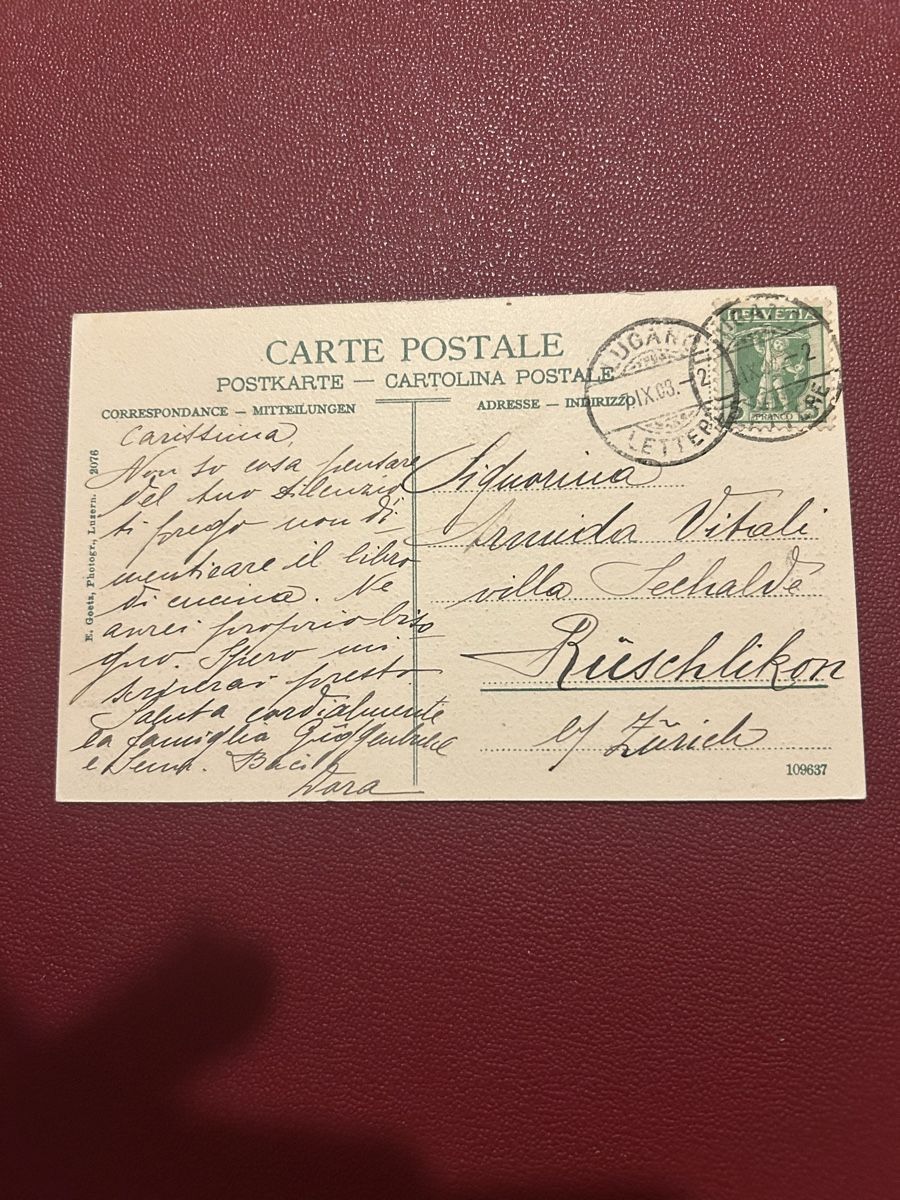 CARTE POSTALE
POSTKARTE — CARTOLINA POSTALE
CORRESPONDANCE — MITTEILUNGEN
ADRESSE — INDIRIZZO
LUGANO
IX.08. — 2
LETTERE
HELVETIA
FRANCO
5
IX — 2
E. Goetz, Photogr., Luzern. 2076
Carissima,
Non so cosa pensare
del tuo silenzio,
ti prego non di
menticare il libro
di cucina. Ne
avrei proprio biso
gno. Spero mi
scriverai presto
Saluta cordialmente
la famiglia
e Baci
Dora
Signorina
Armida Vitali
villa Seehalde
Rüschlikon
b/ Zürich
109637